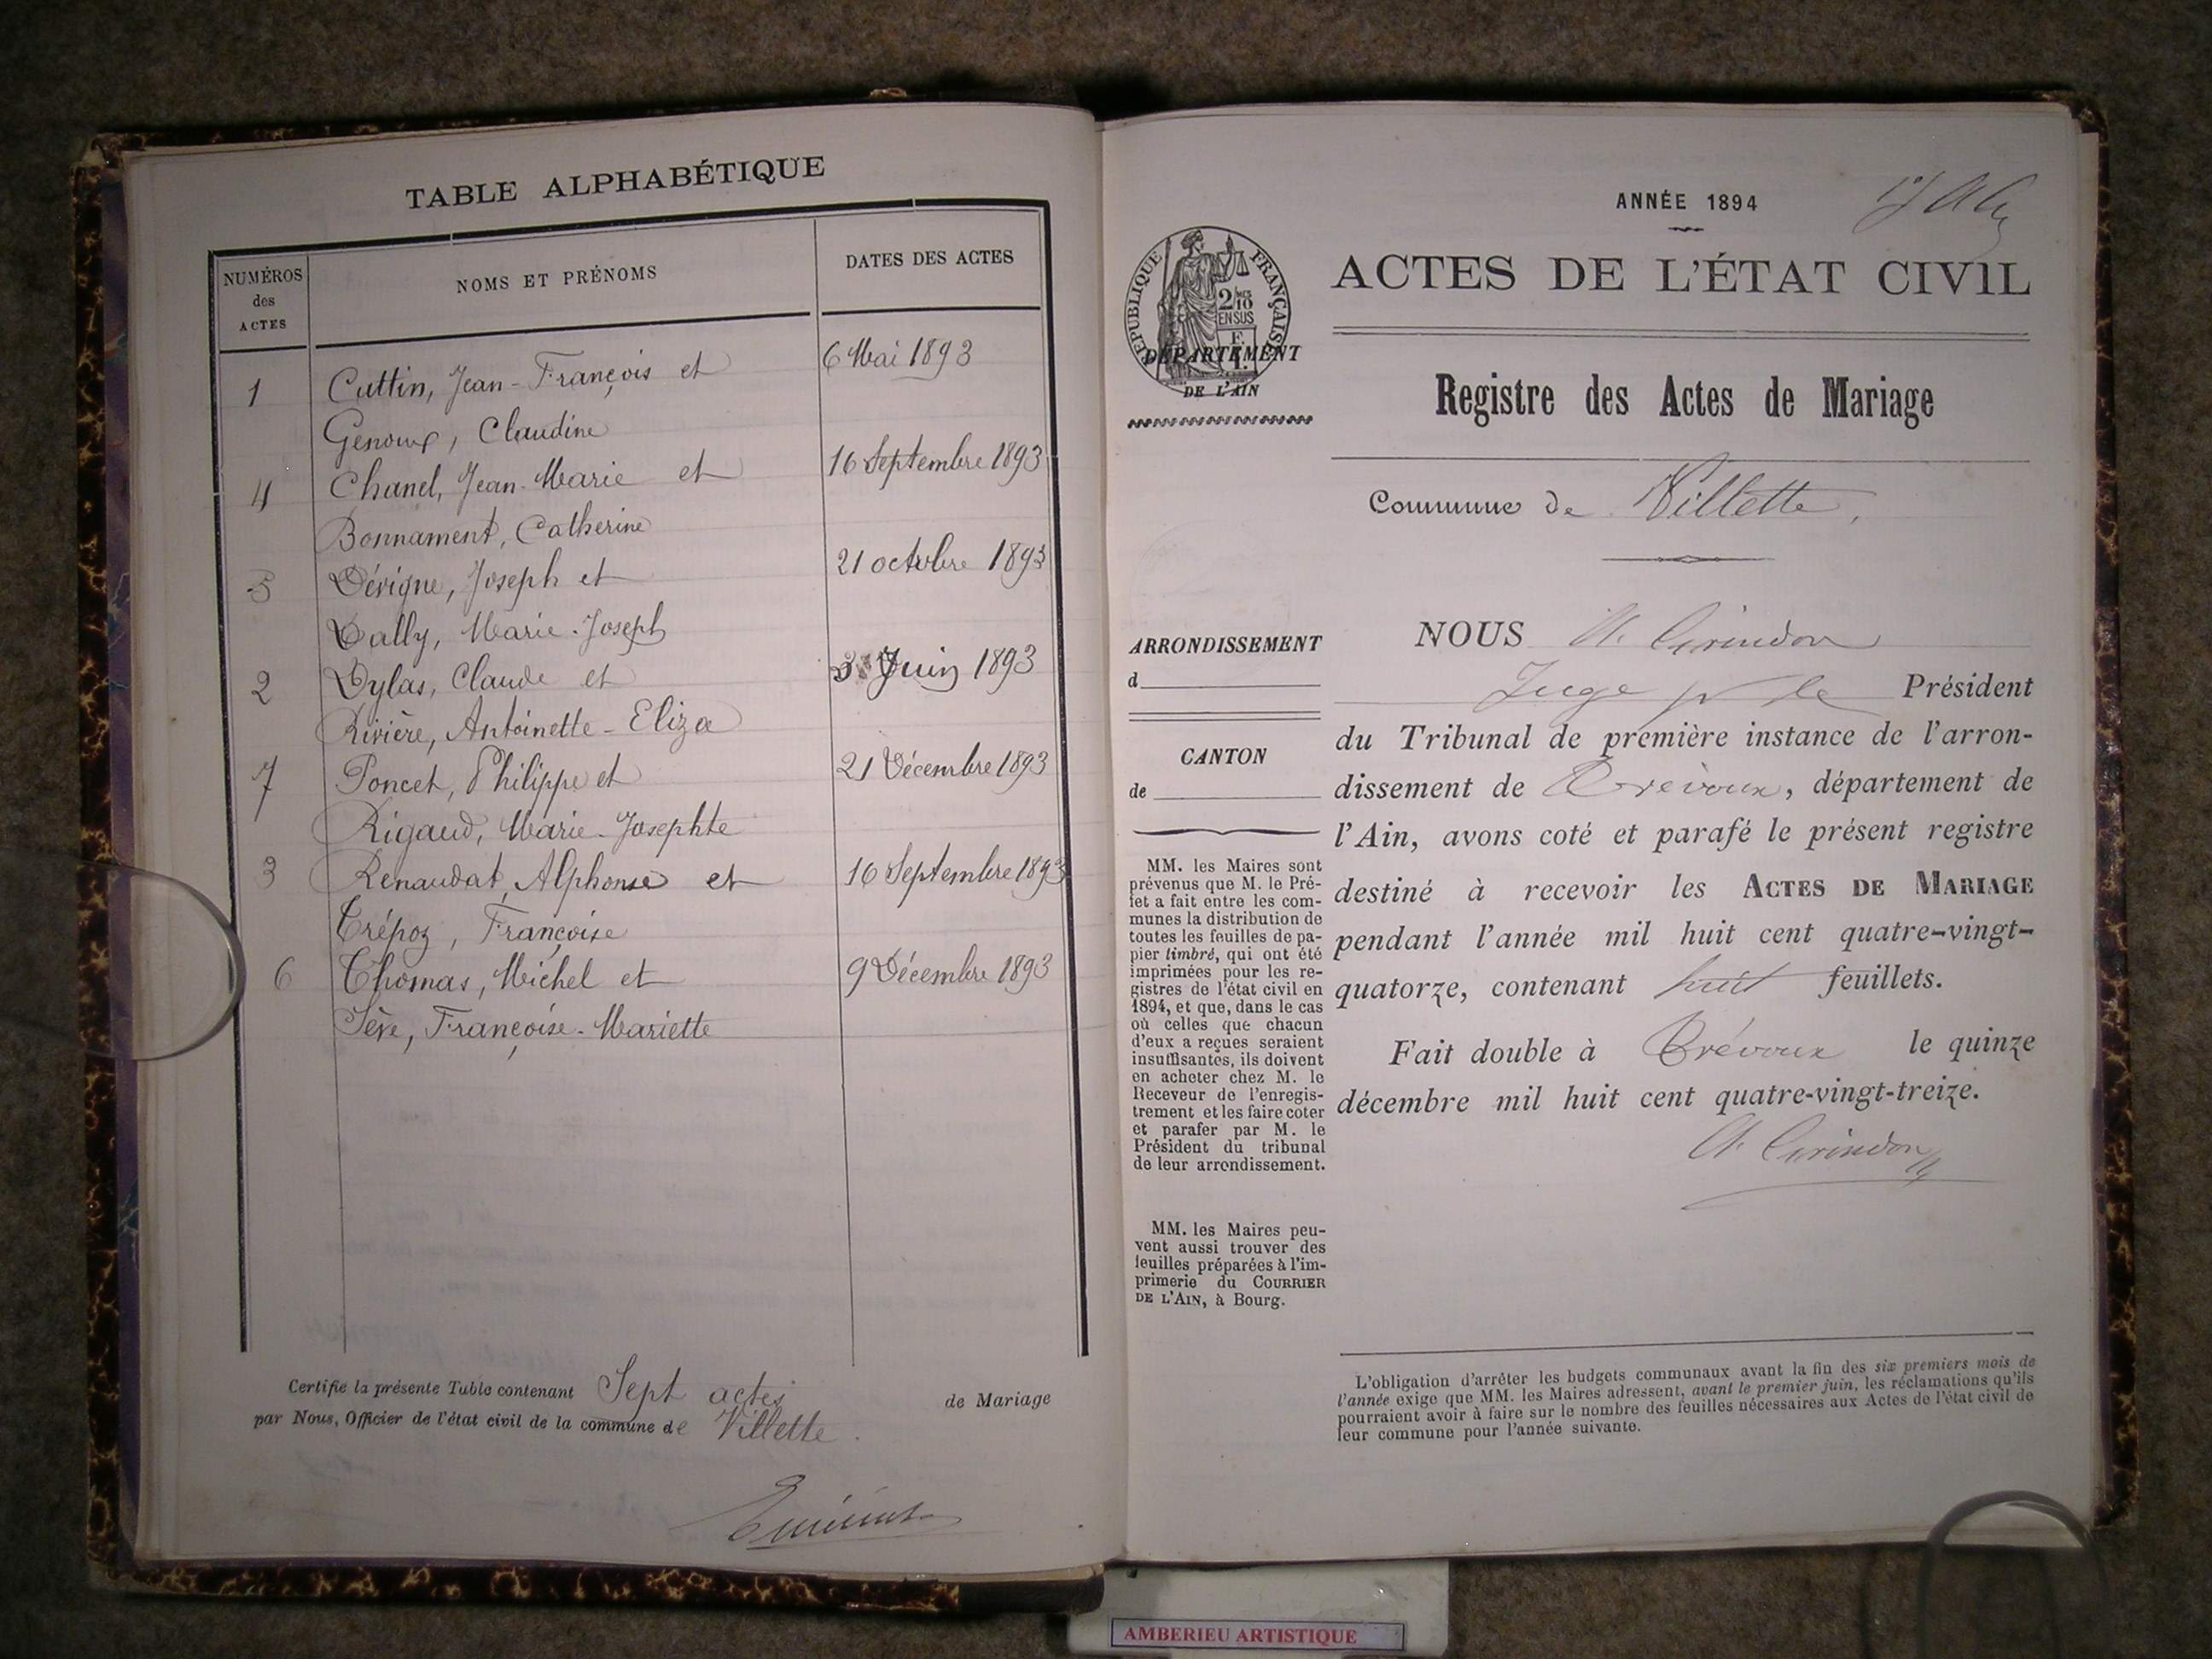 TABLE ALPHABÉTIQUE
NUMÉROS
des
ACTES
NOMS ET PRÉNOMS
DATES DES ACTES
1 Cuttin, Jean-François et 6 Mai 1893
Genoux, Claudine
4 Chanel, Jean-Marie et 16 Septembre 1893
Bonnament, Catherine
5 Dévigne, Joseph et 21 octobre 1893
Dally, Marie-Joseph
2 Dylas, Claude et 3 Juin 1893
Rivière, Antoinette-Eliza
7 Poncet, Philippe et 21 Décembre 1893
Rigaud, Marie-Josephte
3 Renaudat, Alphonse et 16 Septembre 1893
Trépoz, Françoise
6 Thomas, Michel et 9 Décembre 1893
Sève, Françoise-Mariette
Certifie la présente Table contenant Sept actes de Mariage
par Nous, Officier de l'état civil de la commune de Villette.
ANNÉE 1894
ACTES DE L'ÉTAT CIVIL
RÉPUBLIQUE FRANÇAISE
2/10
EN SUS
DÉPARTEMENT
DE L'AIN
Registre des Actes de Mariage
Commune de Villette,
ARRONDISSEMENT
d
CANTON
de
MM. les Maires sont
prévenus que M. le Pré-
fet a fait entre les com-
munes la distribution de
toutes les feuilles de pa-
pier timbré, qui ont été
imprimées pour les re-
gistres de l'état civil en
1894, et que, dans le cas
où celles que chacun
d'eux a reçues seraient
insuffisantes, ils doivent
en acheter chez M. le
Receveur de l'enregis-
trement et les faire coter
et parafer par M. le
Président du tribunal
de leur arrondissement.
MM. les Maires peu-
vent aussi trouver des
feuilles préparées à l'im-
primerie du COURRIER
DE L'AIN, à Bourg.
NOUS A. Grindon
Juge pr le Président
du Tribunal de première instance de l'arron-
dissement de Trévoux, département de
l'Ain, avons coté et parafé le présent registre
destiné à recevoir les ACTES DE MARIAGE
pendant l'année mil huit cent quatre-vingt-
quatorze, contenant huit feuillets.
Fait double à Trévoux le quinze
décembre mil huit cent quatre-vingt-treize.
A. Grindon
L'obligation d'arrêter les budgets communaux avant la fin des six premiers mois de
l'année exige que MM. les Maires adressent, avant le premier juin, les réclamations qu'ils
pourraient avoir à faire sur le nombre des feuilles nécessaires aux Actes de l'état civil de
leur commune pour l'année suivante.
AMBERIEU ARTISTIQUE